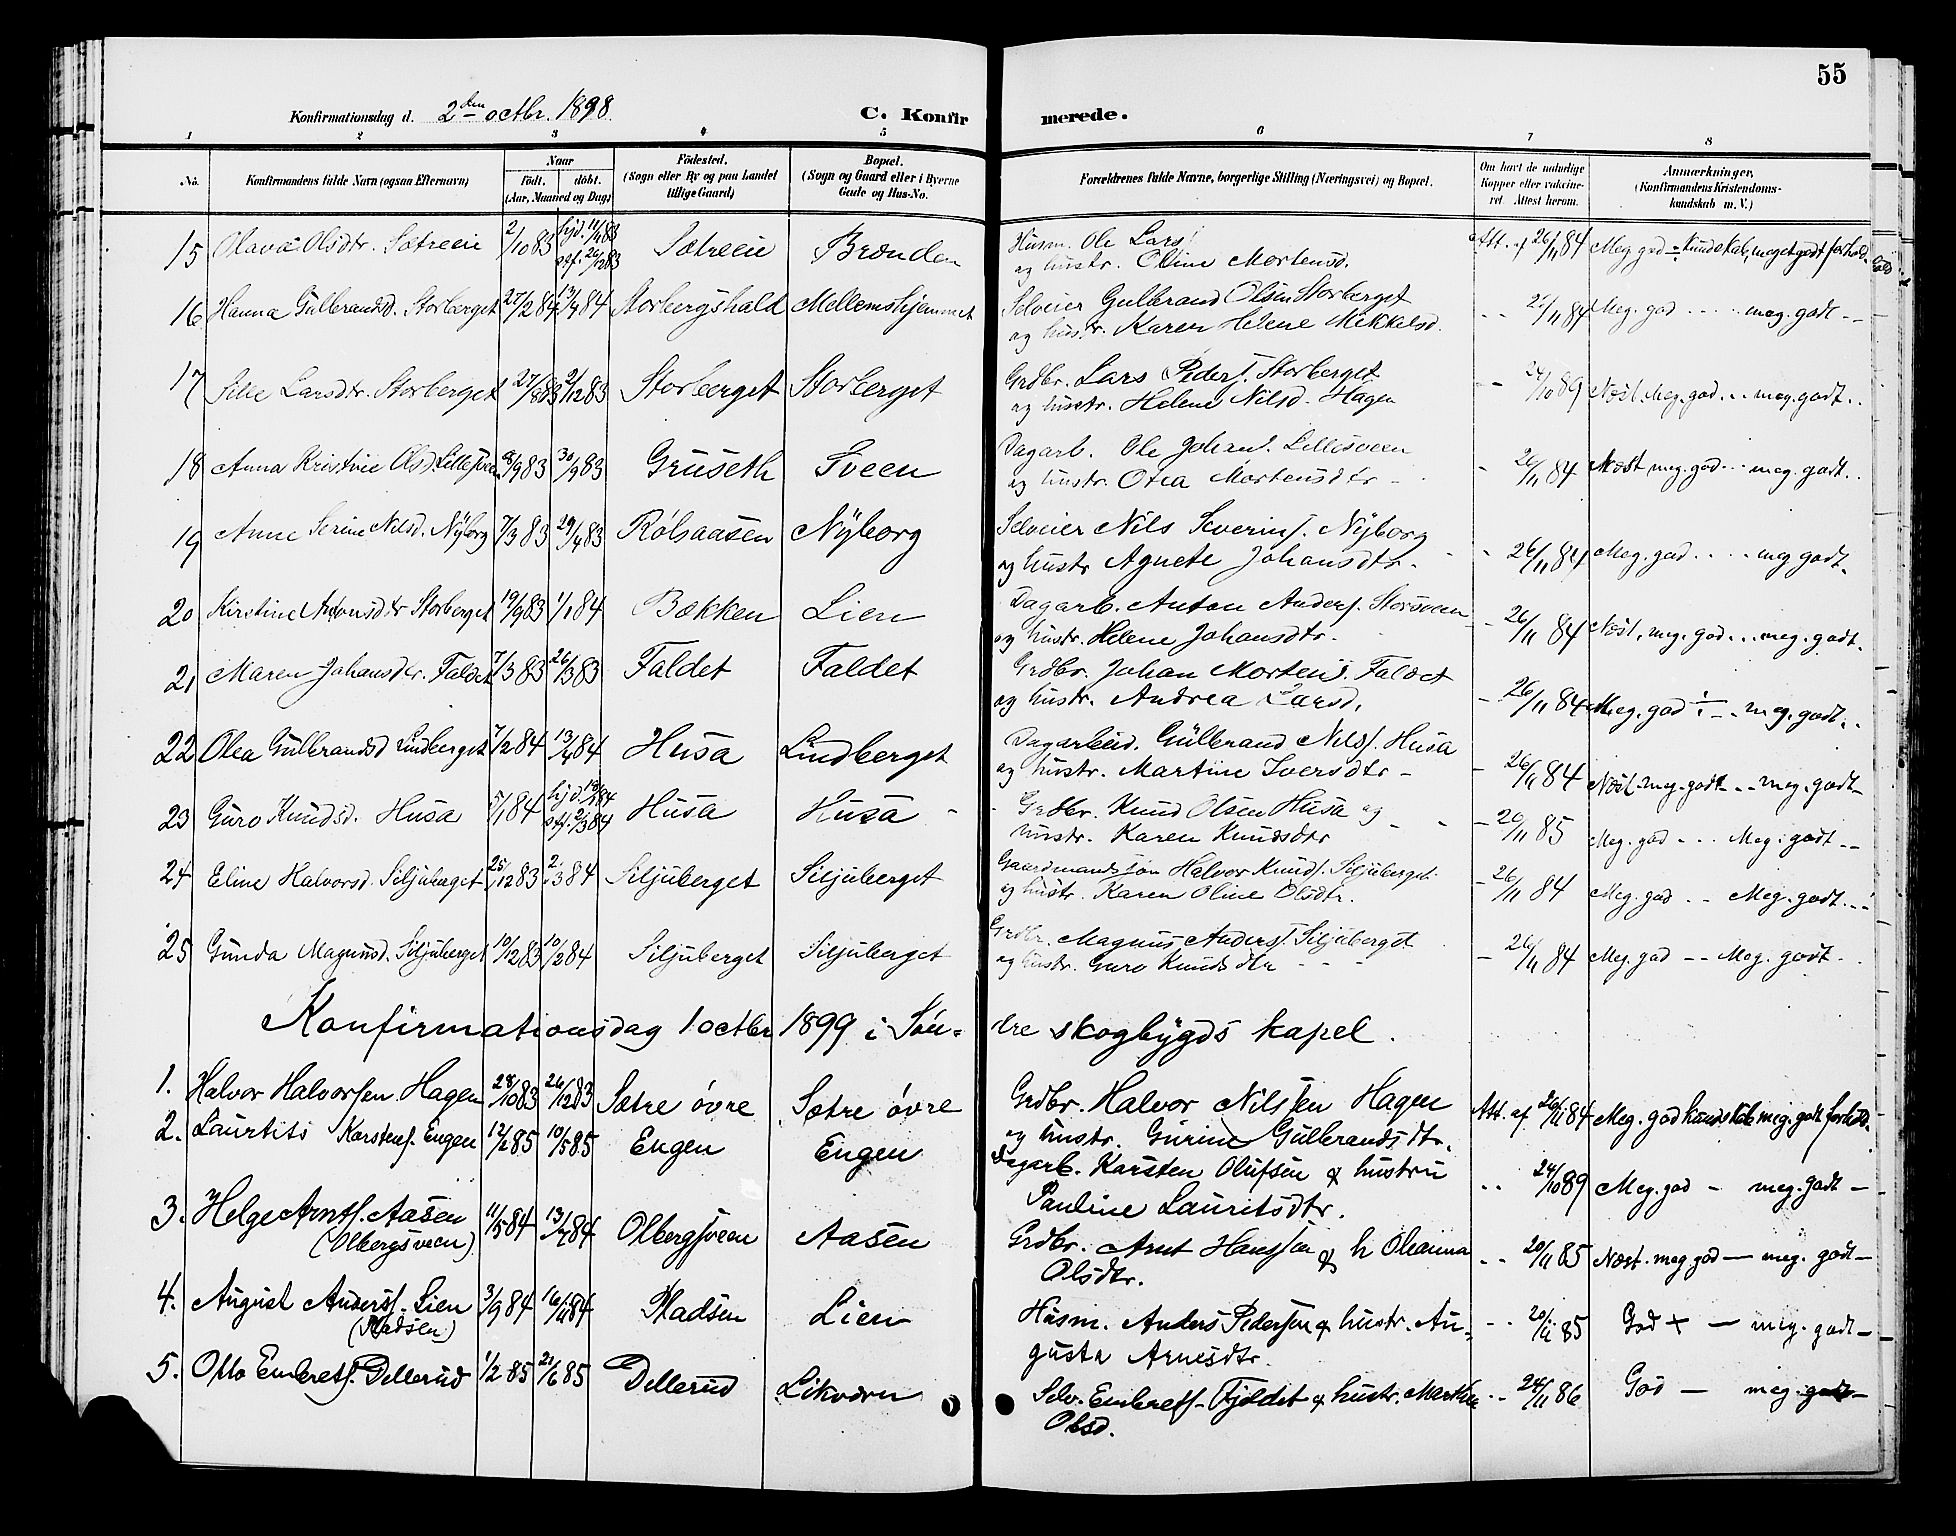 55
Konfirmationsdag d. 2den octbr. 1898.
C. Konfirmerede.
1 2 3 4 5 6 7 8
No. Konfirmandens fulde Navn (ogsaa Efternavn) Naar Födt. döbt. (Aar, Maaned og Dag) Födested. (Sogn eller By og paa Landet tillige Gaard) Bopæl. (Sogn og Gaard eller i Byerne Gade og Hus-No. Forældrenes fulde Navne, borgerlige Stilling (Næringsvei) og Bopæl. Om havt de naturlige Kopper eller vakcineret. Attest herom. Anmærkninger, (Konfirmandens Kristendomskundskab m. V.)
15 Olava Olsdtr. Sætreeie 2/10 83 hjd. 11/11 83 Sætreeie Brænden Husm. Ole Lars. Att. af 26/11 84 Meg. god kundskab, meget godt forhold.
stf. 26/12 83 og hustr. Oline Mortensd.
16 Hanna Gulbrandsd. Storberget 27/2 84 13/4 84 Storbergshald Mellemskjemmet Selveier Gulbrand Olsen Storberget -- 26/11 84 Meg. god .... meg. godt --
og hustr. Karen Helene Mikkelsd.
17 Silie Larsdtr. Storberget 27/8 83 2/12 83 Storberget Storberget Grdbr. Lars Peders. Storberget -- 24/10 89 Næst. Meg. god ... meg. godt..
og hustr. Helene Nilsd. Hagen
18 Anna Kristine Olsd. Lillesveen 8/9 83 30/9 83 Gruseth Sveen Dagarb. Ole Johans. Lillesveen - 26/11 84 Næst meg. god ... meg. godt..
og hustr. Olea Mortensdtr -
19 Anne Serine Nilsd. Nÿborg 7/3 83 29/4 83 Rölsaasen Nÿborg Selveier Nils Severins. Nÿborg - 26/11 84 Meg. god .... meg godt.
og hustr Agnete Johansdtr.
20 Kirstine Antonsdtr Storberget 19/9 83 1/1 84 Bækken Lien Dagarb. Anton Anders. Storsveen - 26/11 84 Næst. meg. god ... meg. godt.
og hustr. Helene Johansdtr.
21 Maren Johansdtr. Faldet 7/3 83 26/3 83 Faldet Faldet Grdbr. Johan Mortens. Faldet - 26/11 84 Meg. god -- meg. godt..
og hustr. Andrea Larsd.
22 Olea Gulbrandsd Lindberget 7/2 84 13/4 84 Husa Lindberget Dagarbeid. Gülbrand Nils. Husa - 26/11 84 Næst meg. godt -- meg. godt-
og hustr. Martine Iversdtr -
23 Guro Knudsd. Husa 5/1 84 hjd. 13/1 84 Husa Husa - Grdbr. Knud Olsen Husa og - 20/11 85 Meg. god ... Meg. godt --
stf. 2/3 84 hustr. Karen Knudsdtr
24 Eline Halvorsd. Siljuberget 25/12 83 2/3 84 Siljuberget Siljuberget Gaardmandssön Halvor Knuds. Siljuberget - 26/11 84 Meg. god .. Meg. godt ...
og hustr. Karen Oline Olsdtr.
25 Gunda Magnusd. Siljuberget 10/12 83 10/2 84 Siljuberget Siljuberget Grdbr. Magnus Anders. Siljuberget - 26/11 84 Meg. god -- Meg. godt -
og hustr. Guro Knudsdtr
Konfirmationsdag 1 octbr 1899 i Söndre skogbÿgds kapel.
1. Halvor Halvorsen Hagen 28/10 83 26/12 83 Sætre övre Sætre övre Grdbr. Halvor Nilssen Hagen Att. af 26/11 84 Meg. god kundskab meg. godt forhold.
og hustr. Gurine Gulbrandsdtr.
2. Laurtits Karstens. Engen 12/2 85 10/5 85 Engen Engen Dagarb. Karsten Olufsen & hustru .. 24/10 89 Meg. god - meg. godt -
Pauline Lauritsdtr.
3. Helge Arnts. Aasen 11/5 84 13/7 84 Olbergsveen Aasen Grdbr. Arnt Hanssen & h Oleanna .. 20/11 85 Næst. meg god - meg. godt -
(Olbergsveen) Olsdtr.
4. August Anders. Lien 3/9 84 16/11 84 Pladsen Lien Husm. Anders Pedersen & hustr. Au- .. 20/11 85 God + - meg. godt -
(Pladsen) gusta Arnesdtr.
5. Otto Embrets. Dellerud 1/2 85 21/6 85 Dellerud Likværn Selv. Embret - Fjeldet & hustr. Marthea .. 24/11 86 God - meg. godt -
Olsd.